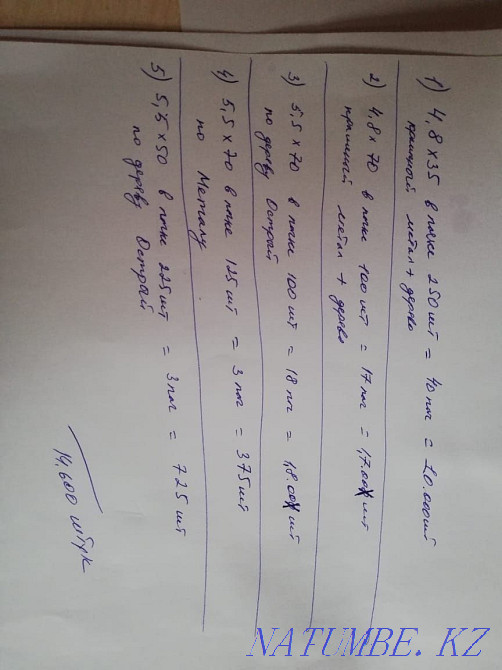 1) 4,8 х 35 в пачке 250 шт = 40 пач = 10.000 шт
крашный метал + дерево
2) 4,8 х 70 в пачке 100 шт = 17 пач = 1,700 шт
крашный метал + дерево
3) 5,5 х 70 в пачке 100 шт = 18 пч = 1,800 шт
по дереву Острый
4) 5,5 х 70 в пачке 125 шт = 3 пач = 375 шт
по Металу
5) 5,5 х 50 в пачке 225 шт = 3 пач = 725 шт
по дереву Острый
14,600 штук
NATUMBE.KZ